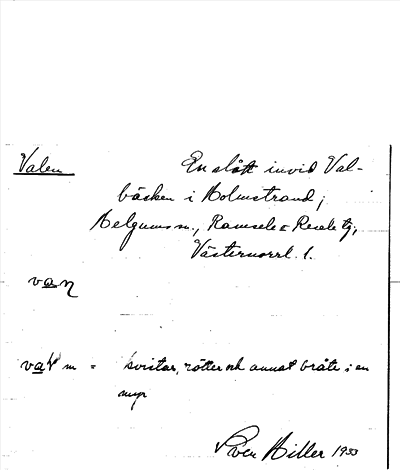 Valen
En slått invid Val-
bäcken i Holmstrand,
Helgums s., Ramsele o Resele tg,
Västernorrl. l.
van
val m = kvistar, rötter och annat bråte i en
myr
Sven Hiller 1933